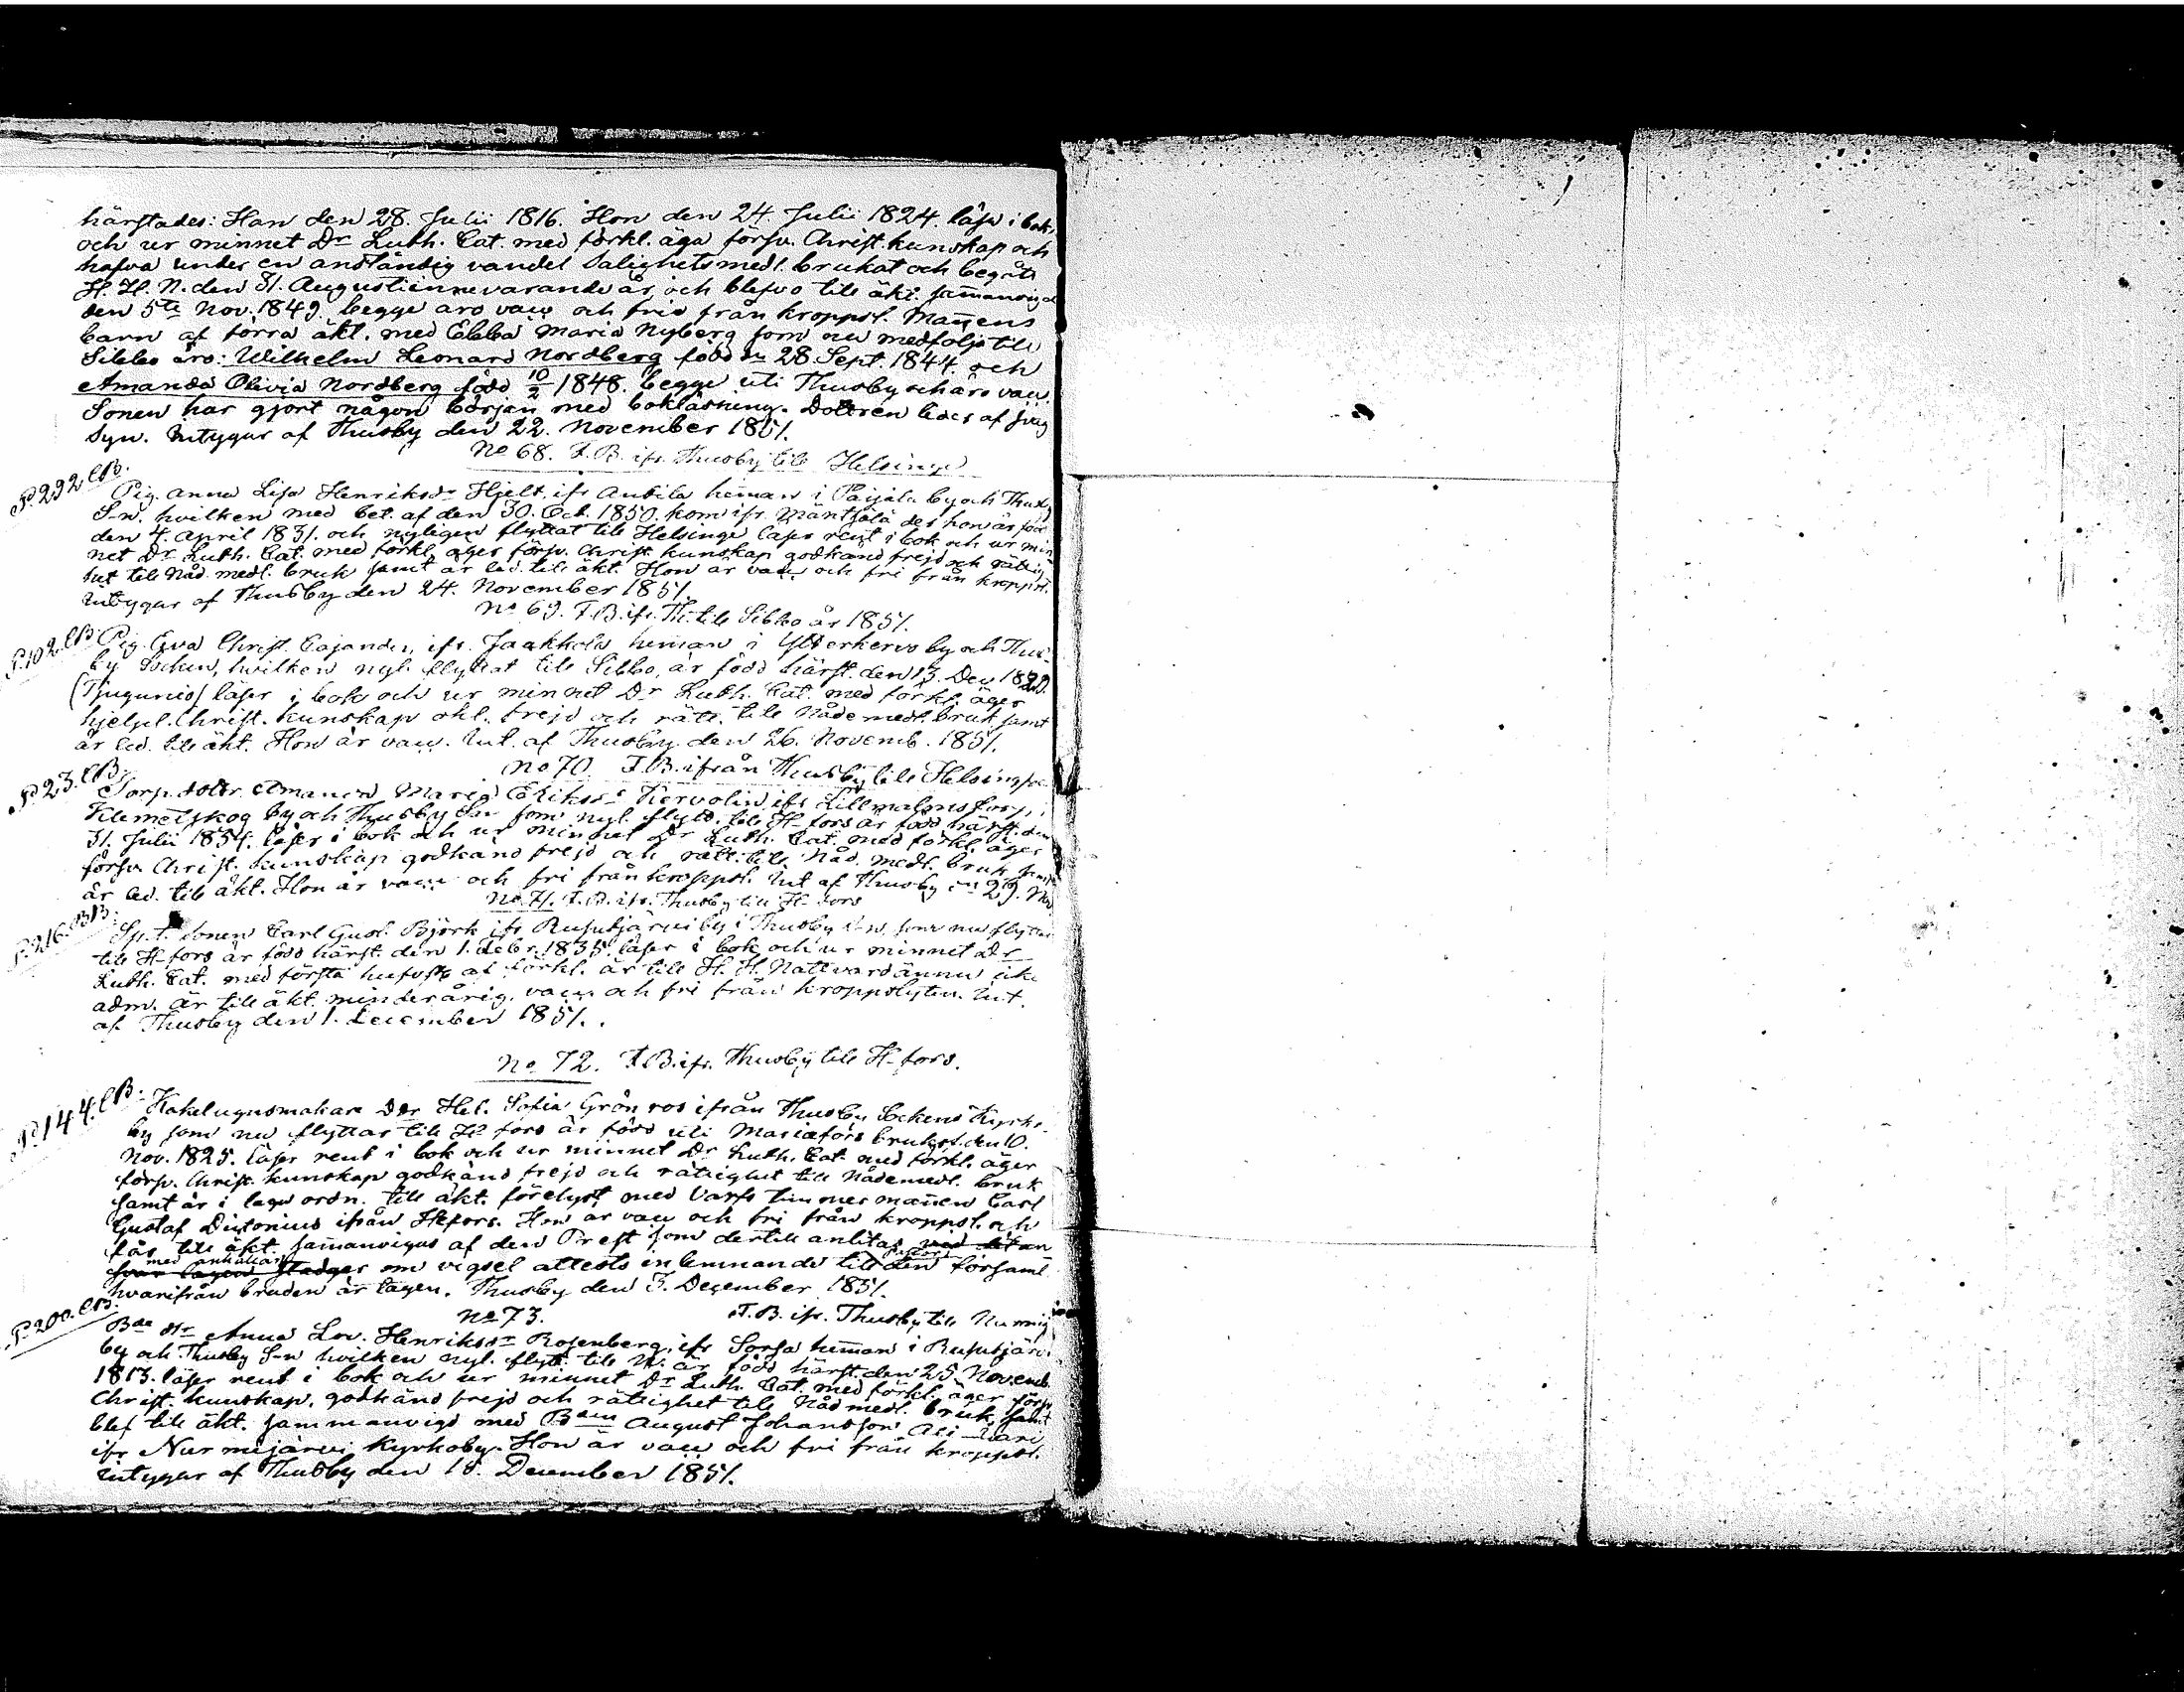 härstades: Han den 28. Julii 1816. Hon den 24. Julii 1824. läsa i bok,
och ur minnet Dr Luth. Cat. med förkl. äga försv. Christ. kunskap och
hafva under en anständig vandel Salighetsmedl. brukat och begått
H. H. N. den 31. Augusti innevarande år, och blefvo till äkt. sam̄anvigde
den 5te Nov. 1849. begge äro vacc och fria från kroppsl. Man̄ens
barn af förra äkt. med Ebba Maria Nyberg som nu medfölja till
Sibbo äro: Wilhelm Leonard Nordberg född dn 28 Sept. 1844. och
Amanda Olivia Nordberg född 10/2 1848. begge uti Thusby och äro vacc.
Sonen har gjort någon början med bokläsning. Dottren lider af svag
syn. Intygar af Thusby den 22. November 1851.
No 68. F. B. ifr. Thusby till Helsinge
P. 292 CB.
Pig. Anna Lisa Henriksdr Hjelt, ifr Antila heman i Paijala by och Thusby
S-n. hvilken med bet. af den 30. Oct. 1850. kom ifr. Mäntsälä der hon är född
den 4. April 1831. och nyligen flyttat till Helsinge läser rent i bok och ur min
net Dr Luth. Cat. med förkl. äger försv. Christ. kunskap godkänd frejd och rättig
het till Nåd. medl. bruk samt är led. till äkt. Hon är vacc. och fri från kroppsl.
Intygar af Thusby den 24. November 1851.
No 69. F. B. ifr. Th. till Sibbo år 1851.
P. 102. CB
Pig. Eva Christ. Cajander, ifr. Jaakkola heman i Ytterkervo by och Thus-
by Socken, hvilken nyl. flyttat till Sibbo, är född härst. den 13. Dec 1820.
(Tjugunio) läser i bok och ur minnet Dr Luth. Cat. med förkl. äger
hjelpl. Christ. kunskap okl. frejd och rätt. till Nådemedl. bruk samt
är led. till äkt. Hon är vacc. Int. af Thusby den 26. Novemb. 1851.
No 70. F. B. ifrån Thusby till Helsingfors
P. 23. CB.
Torp. dottr. Amanda Maria Eriksdr Kervolin, ifr Lillmalms torp, i
Klemetskog by och Thusby S-n som nyl. flytt. till H-fors är född härst. den
31. Julii 1834. läser i bok och ur minnet Dr Luth. Cat. med förkl. äger
försv. Christ. kunskap godkänd frejd och rätt. till Nåd. medl. bruk samt
är led. till äkt. Hon är vacc. och fri från kroppsl. Int af Thusby dn 29. Nov
No 71. F. B. ifr. Thusby till H-fors
P. 216. BB:
Sp. t. sonen Carl Gust. Björk ifr Rusutjärvi by i Thusby S-n, som nu flyttar
till H-fors är född härst. den 1. 1835. läser i bok och ur minnet Dr
Luth. Cat. med första hufvst. af förkl. är till H. H. Nattvard ännu icke
adm. är till äkt. minderårig. vacc. och fri från kroppslyten. Int.
af Thusby den 1. December 1851.
No 72. F. B. ifr. Thusby till H-fors.
P. 144. CB.
Kakelugnsmakare Dr Hel. Sofia Grönroos ifrån Thusby Sockens Kyrko-
by som nu flyttar till H-fors är född uti Mariæfors bruksf. den 10.
Nov. 1825. läser rent i bok och ur minnet Dr Luth. Cat. med förkl. äger
försv. Christ. kunskap godkänd frejd och rättighet till Nådemedl. bruk
samt är i laga ordn. till äkt. förelyst med Varfs timmerman̄en Carl
Gustaf Dictonius ifrån H-fors. Hon är vacc och fri från kroppsl. och
får till äkt. sam̄anvigas af den Prest som dertill anlitas med det an
med anhållan
svar lagen stadger om vigsel attests inlemnande till den församl
hvarifrån bruden är tagen. Thusby den 3. December 1851.
No 73. F. B. ifr. Thusby till Nurmij
P. 200. CB.
Bde dr Anna Lov. Henriksdr Rosenberg, ifr Sorsa heman̄ i Rusutjärvi
by och Thusby S-n hvilken nyl. flytt. till N. är född härst. den 25. Novemb
1813. läser rent i bok och ur minnet Dr Luth. Cat. med förkl. äger försv
Christ. kunskap, godkänd frejd och rättighet till Nåd medl. bruk, samt
blef till äkt. sammanvigd med Bden August Johansson
ifr Nurmijärvi Kyrkoby. Hon är vacc och fri från kroppsl.
Intygar af Thusby den 18. December 1851.